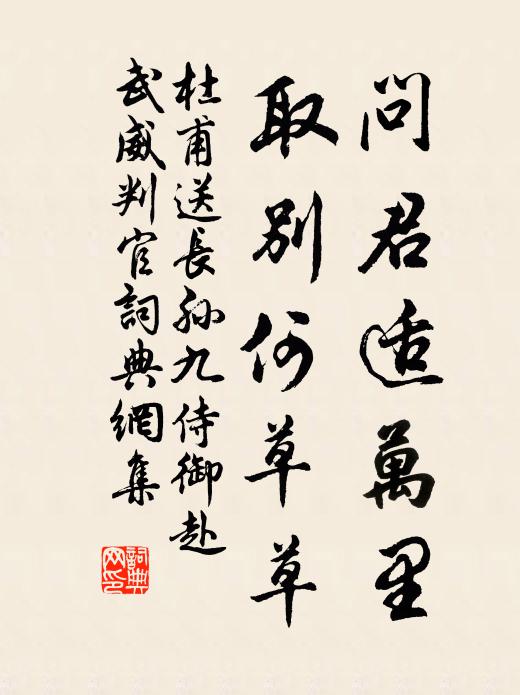 問君適萬里
取別何草草
杜甫送長孫九侍御赴
武威判官詞典網集
詞典
网印